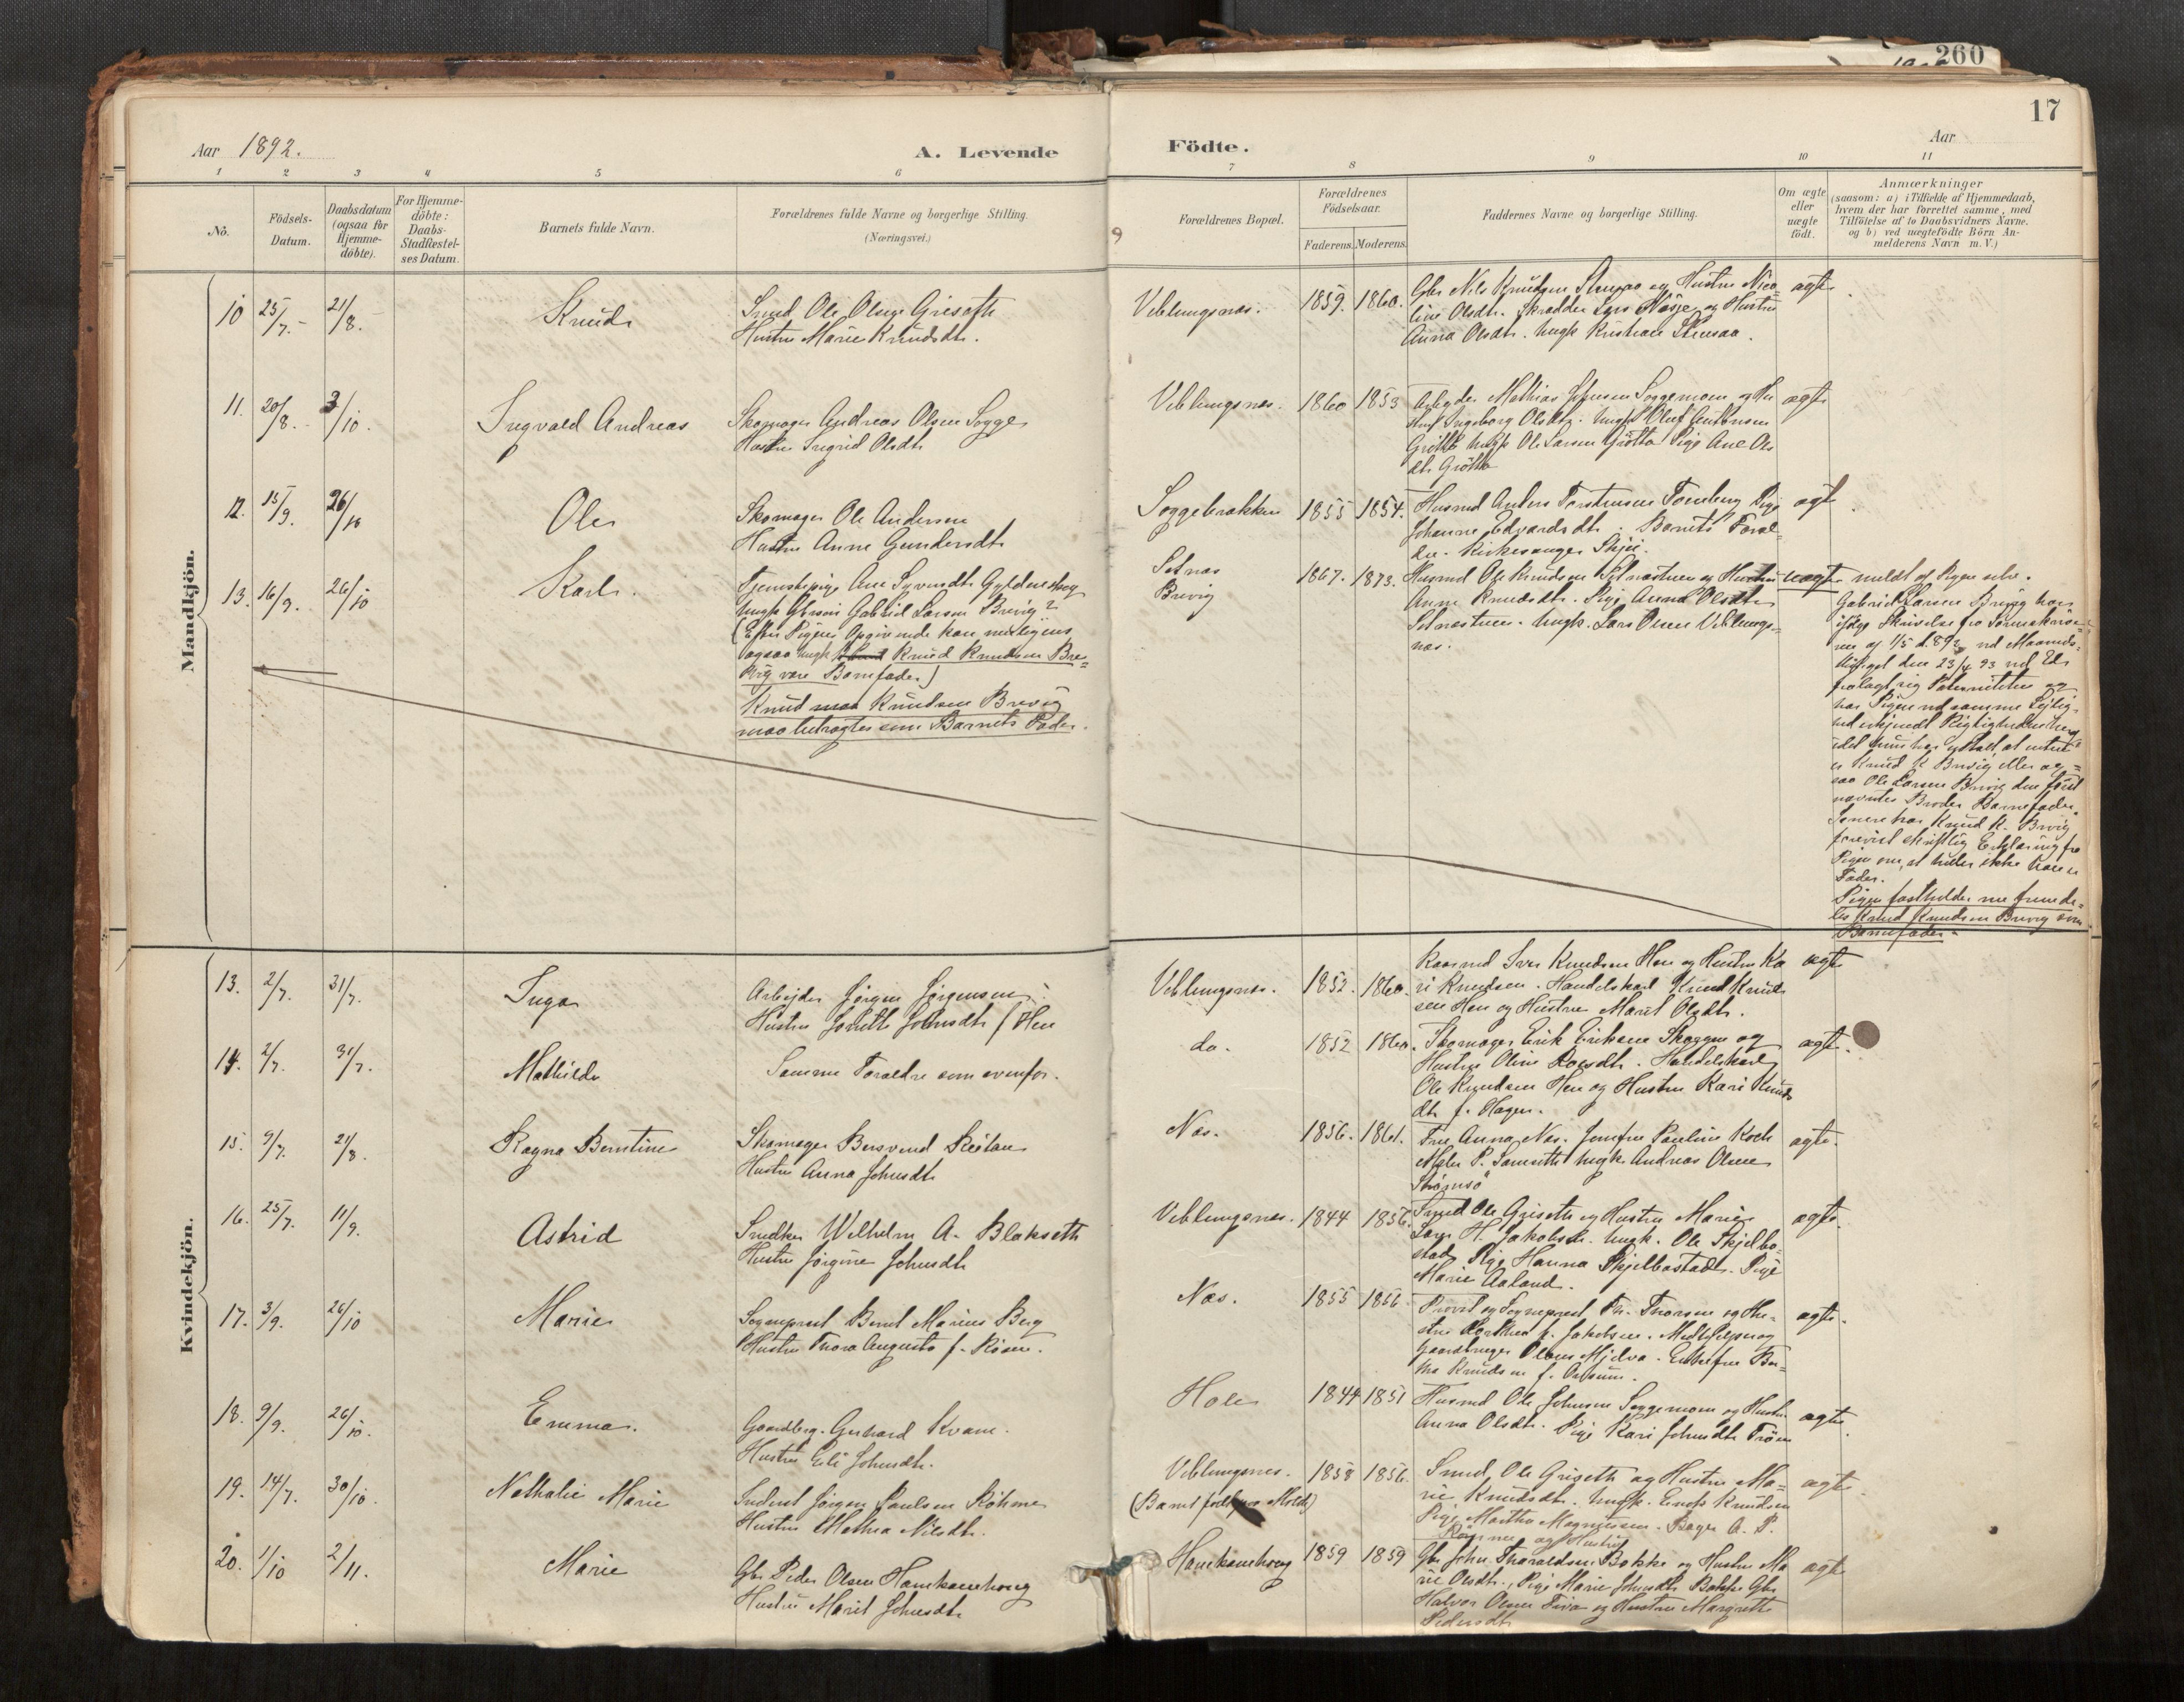 260
17
Aar 1892.
A. Levende
Födte.
Aar
1 2 3 4 5 6 7 8 9 10 11
No.
Födsels-
Datum.
Daabsdatum
(ogsaa for
Hjemme-
döbte).
For Hjemme-
döbte:
Daabs-
Stadfæstel-
ses Datum.
Barnets fulde Navn.
Forældrenes fulde Navne og borgerlige Stilling.
(Næringsvei.)
Forældrenes Bopæl.
Forældrenes
Födselsaar.
Faderens. Moderens.
Faddernes Navne og borgerlige Stilling.
Om ægte
eller
uægte
födt.
Anmærkninger
(saasom: a) i Tilfælde af Hjemmedaab,
hvem der har forrettet samme, med
Tilföielse af to Daabsvidners Navne.
og b) ved uægtefödte Börn An-
melderens Navn m. V.)
Mandkjön.
10 25/7. 21/8. Knud Smed Ole Olsen Griseth
Hustru Marie Knudsdtr.
Veblungsnæs. 1859. 1860. Gbr Nils Knudsen og Hustru Nico
line Olsdtr. Skrædder Lars og Hustru
Anna Olsdtr. Ungk Kristian
ægte
11. 20/8. 3/10. Ingvald Andreas Skomager Andreas Olsen Sogge
Hustru Ingrid Olsdtr
Veblungsnæs. 1860 1853 Arbejder Mathias Johnsen Soggemoen og Hu
stru Ingeborg Olsdtr. Ungk Oluf Antonsen
Grötta Ungk Ole Larsen Grötta Pige Ane Ols
dtr Grötta
ægte
12. 15/9. 26/10 Ole Skomager Ole Andersen
Hustru Anne Gundersdtr
Soggebrækken 1855 1854. Husmd Anders Torstensen Pige
Johanne Edvardsdtr. Barnets Foræl-
dre. Kirkesanger
ægte
13. 16/9. 26/10 Karl. Tjenestepige Ane Syversdtr Gyldenskog
Ungk Gabriel Larsen Brevig?
(Efter Pigens Opgivende kan muligens
ogsaa Ungk Knud Knudsen Bre-
vig være Barnefader)
Knud Knudsen Brevig
maa betragtes som Barnets Fader.
Setnæs
Brevig
1867. 1873. Husmd Ole Knudsen Setnæstuen og Hustru
Anne Knudsdtr. Pige Anna Olsdtr
Setnæstuen. Ungk. Lars Olsen Veblungs-
næs.
uægte meldt af Pigen selv.
Gabriel Larsen Brevig har
ifölge Skrivelse fra Sorenskrive-
ren af 1/5 d. 893 ved Maaneds-
tinget den 23/4 93 ved Ed
fralagt sig Paterniteten og
har Pigen ved samme Lejlig-
hed erkjendt Rigtigheden heraf
idet hun har udtalt, at enten
er Knud K Brevig eller og-
saa Ole Larsen Brevig den först
nævntes Broder Barnefader.
Senere har Knud K. Brevig
forevist skriftlig Erklæring fra
Pigen om, at heller ikke han er
Fader.
Pigen fastholder nu fremde-
les Knud Knudsen Brevig som
Barnefader.
Kvindekjön.
13. 2/7. 31/7. Inga Arbejder Jörgen Jörgensen
Hustru Johnsdtr Hen
Veblungsnæs. 1852. 1860. Iver Knudsen Hen og Hustru Ka
ri Knudsen. Handelskarl Knud Knud
sen Hen og Hustru Marit Olsdtr.
ægte
14. 2/7. 31/7. Mathilde Samme Forældre som ovenfor.
do. 1852 1860. Skomager Erik Eriksen og
Hustru Oline Handelskarl
Ole Knudsen Hen og Hustru Kari Knuds
dtr f. Hagen.
ægte.
15. 9/7. 21/8. Ragna Berntine Skomager Bersvend
Hustru Anna Johnsdtr
Næs. 1856. 1861. Frue Anna Næs. Jomfru Pauline Koch
Maler P. Ungk. Andreas Olsen
ægte.
16. 25/7. 11/9. Astrid Snedker Wilhelm A. Blakseth
Hustru Jörgine Johnsdtr
Veblungsnæs. 1844 1856. Smed Ole Griseth og Hustru Marie
Lars H. Jakobsen. Ungk. Ole Skjelbo-
stad Pige Hanna Skjelbostad. Pige
Marie Aaland.
ægte.
17. 3/9. 26/10 Marie Sogneprest Bernt Marius Berg
Hustru Thora Augusta f.
Næs. 1855 1856. Provst og Sogneprest Thorsen og Hu-
stru f. Jakobsen.
Gaardbruger Mjelva. Enkefrue
Knudsen f.
ægte.
18. 9/9. 26/10. Emma. Gaardbrg. Gerhard Kvam.
Hustru Eli Johnsdtr.
Hole 1844 1851 Husmd Ole Johnsen Soggemoen og Hustru
Anna Olsdtr. Pige Kari Johnsdtr
ægte.
19. 14/7. 30/10. Nathalie Marie Inderst Jörgen Paulsen
Hustru Mathea Nilsdtr.
Veblungsnæs.
(Barnet födt paa Molde)
1858 1856. Smed Ole Griseth og Hustru Ma-
rie Knudsdtr. Ungk. Knudsen
Pige Martha Magnussen. Bager A. P.
og Hustru
ægte.
20. 1/10 2/11. Marie Gbr Peder Olsen Hanekamhoug
Hustru Marit Johnsdtr
Hanekamhoug 1859 1859 Gbr John Tharaldsen Bakke og Hustru Ma
rie Olsdtr., Pige Marie Johnsdtr Bakke Gbr
Halvor Olsen og Hustru Margrethe
Pedersdtr
ægte